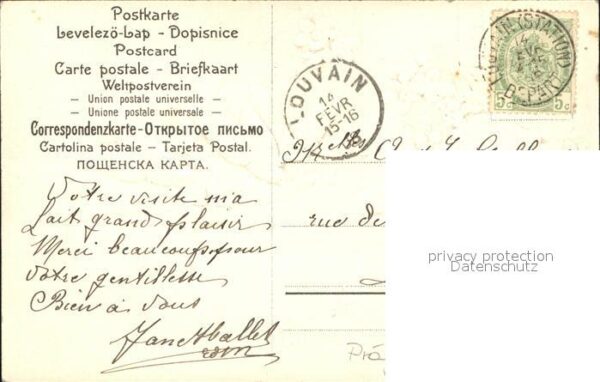 Postkarte
Levelező-Lap - Dopisnice
Postcard
Carte postale - Briefkaart
Weltpostverein
- Union postale universelle -
- Unione postale universale -
Correspondenzkarte - Открытое письмо
Cartolina postale - Tarjeta Postal.
ПОЩЕНСКА КАРТА.
Votre visite m'a
fait grand plaisir
Merci beaucoup pour
votre gentillesse
Bien à vous
LOUVAIN
14
FEVR
15-16
(STATION)
14
DEPART
5c 5c
rue de
privacy protection
Datenschutz